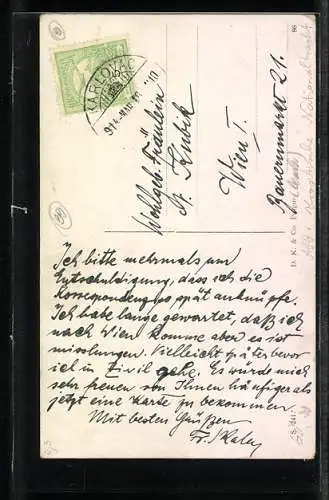 KARLOVAC
914
Wohlgeb. Fräulein
Wien I.
Bauernmarkt 21.
Ich bitte mehrmals um
Entschuldigung, dass ich die
Korrespondenz so spät anknüpfe.
Ich habe lange gewartet, daß ich
nach Wien komme aber es ist
misslungen. Vielleicht später bevor
ich in Zivil gehe. Es würde mich
sehr freuen von Ihnen häufiger als
jetzt eine Karte zu bekommen.
Mit besten Grüßen
D. K. & Co.
86